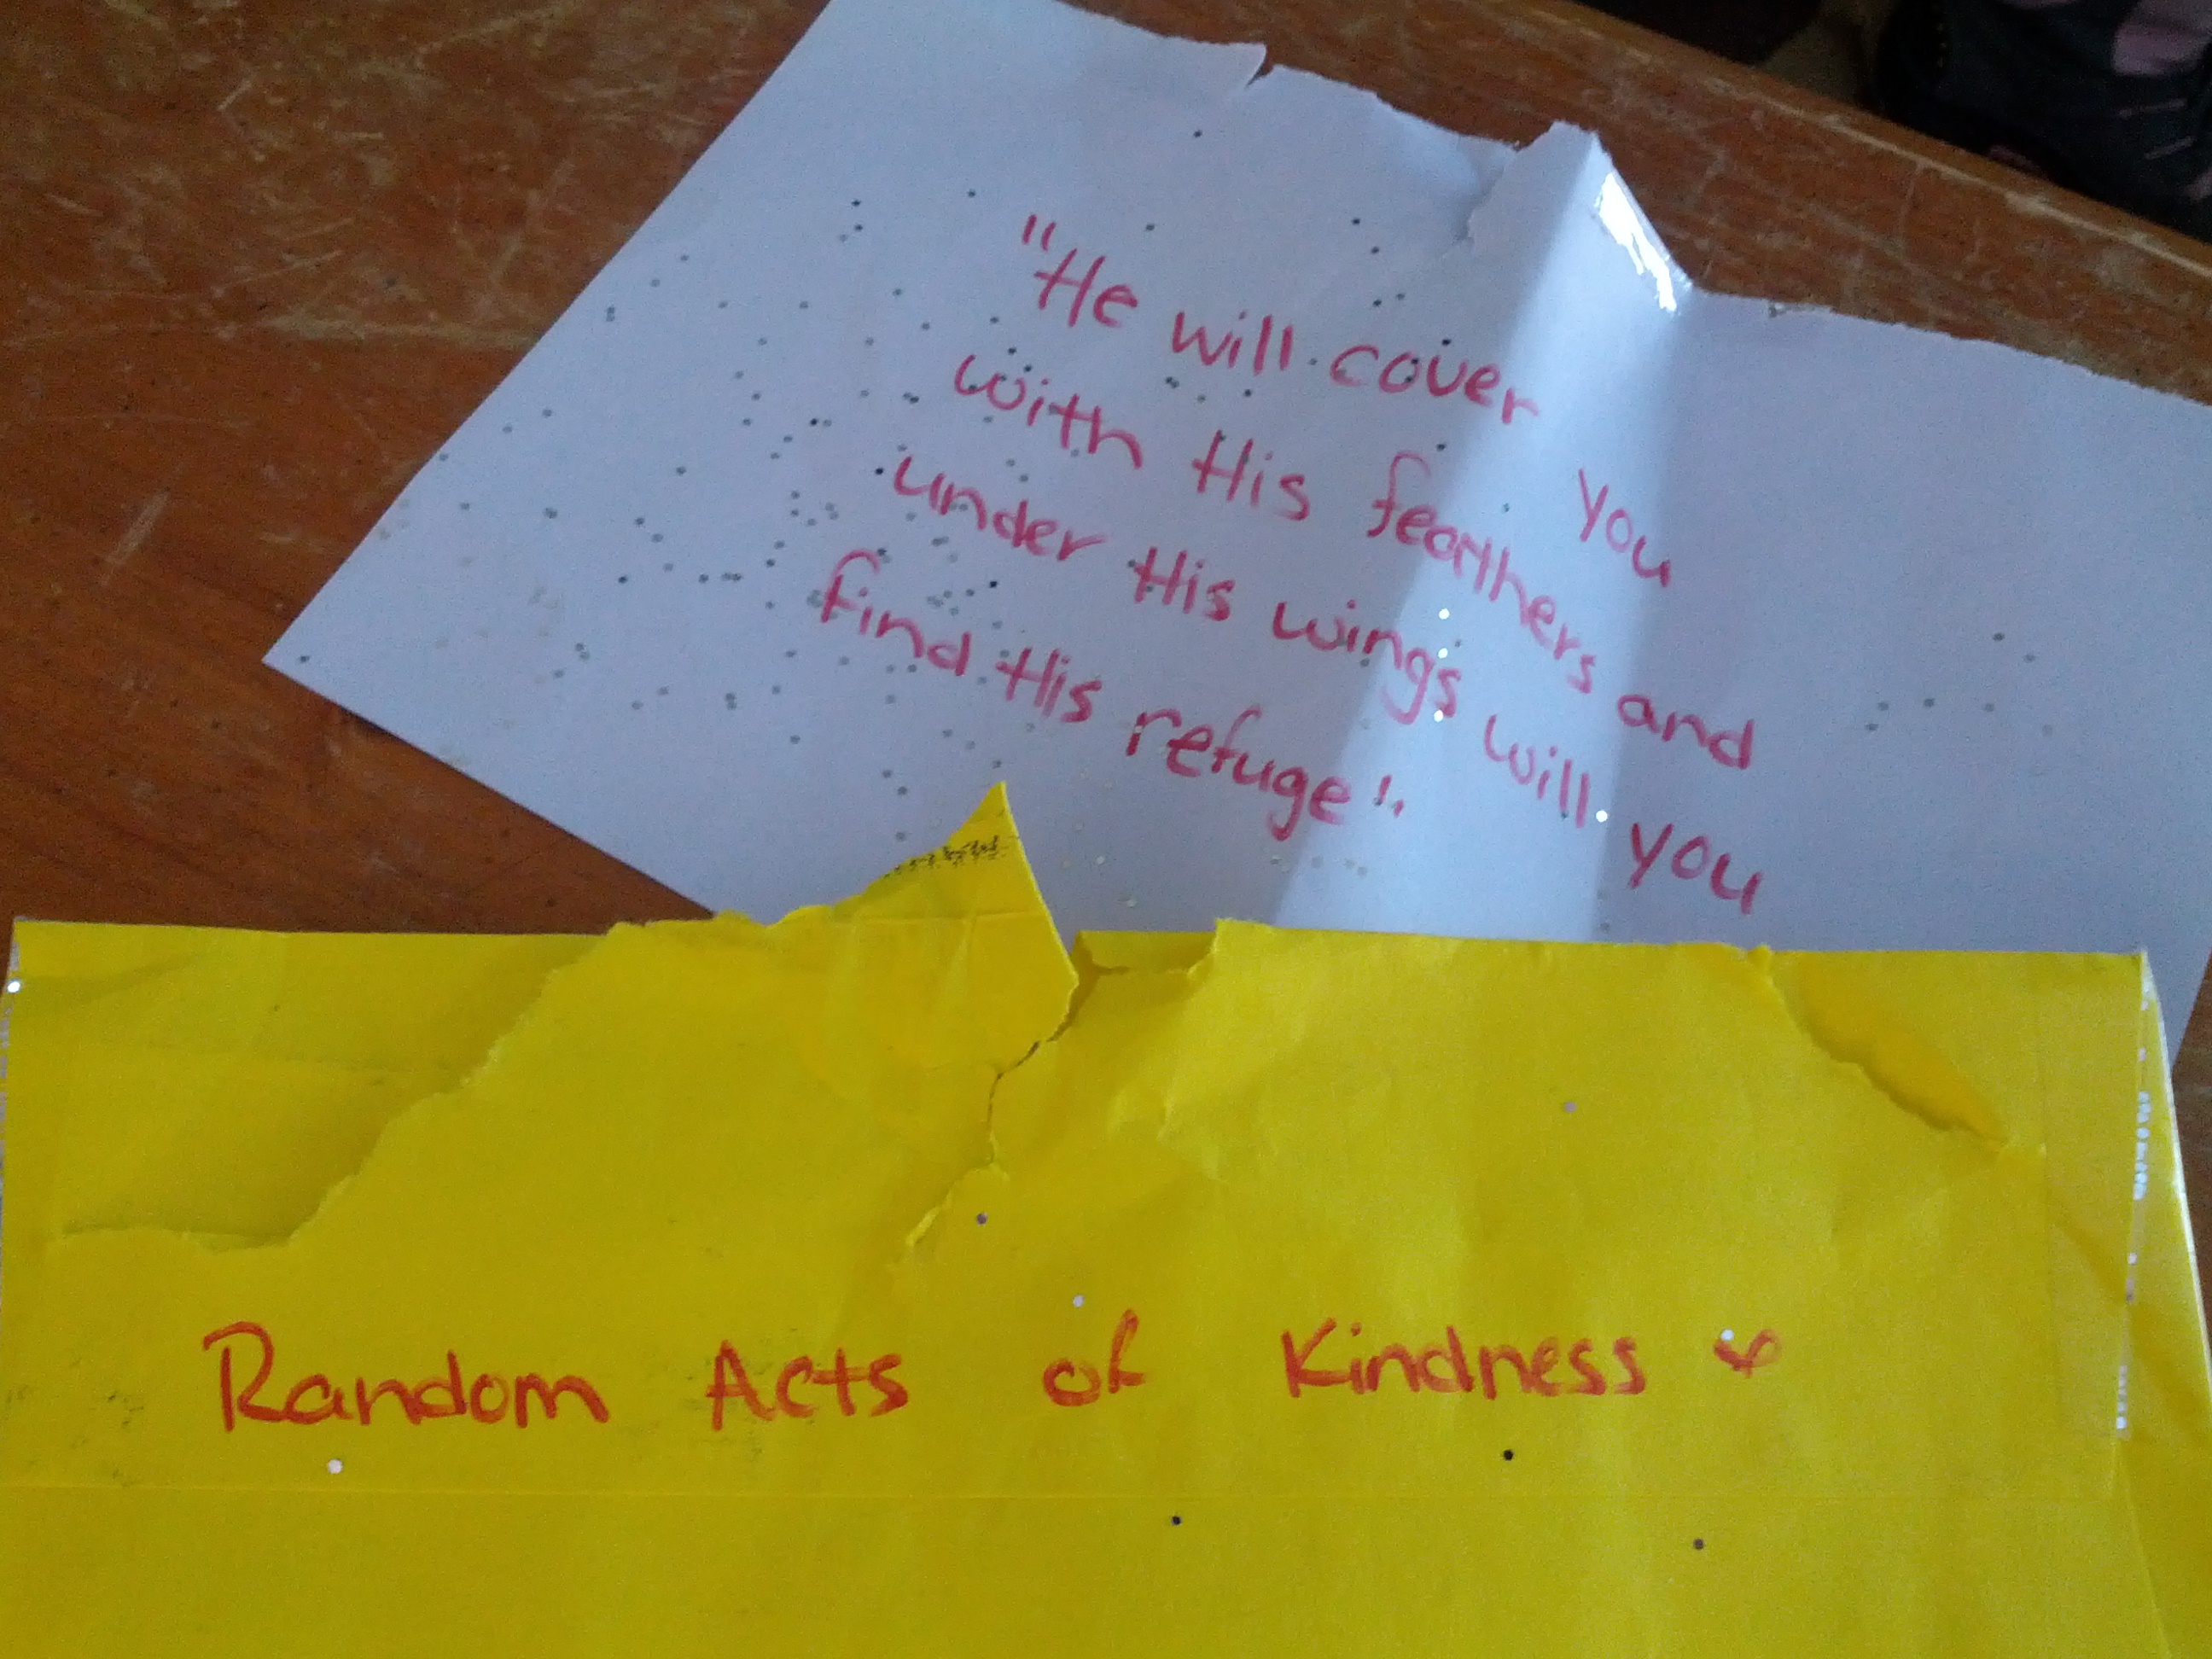 "He will cover you
with His feathers and
under His wings will you
find His refuge"
Random Acts of Kindness